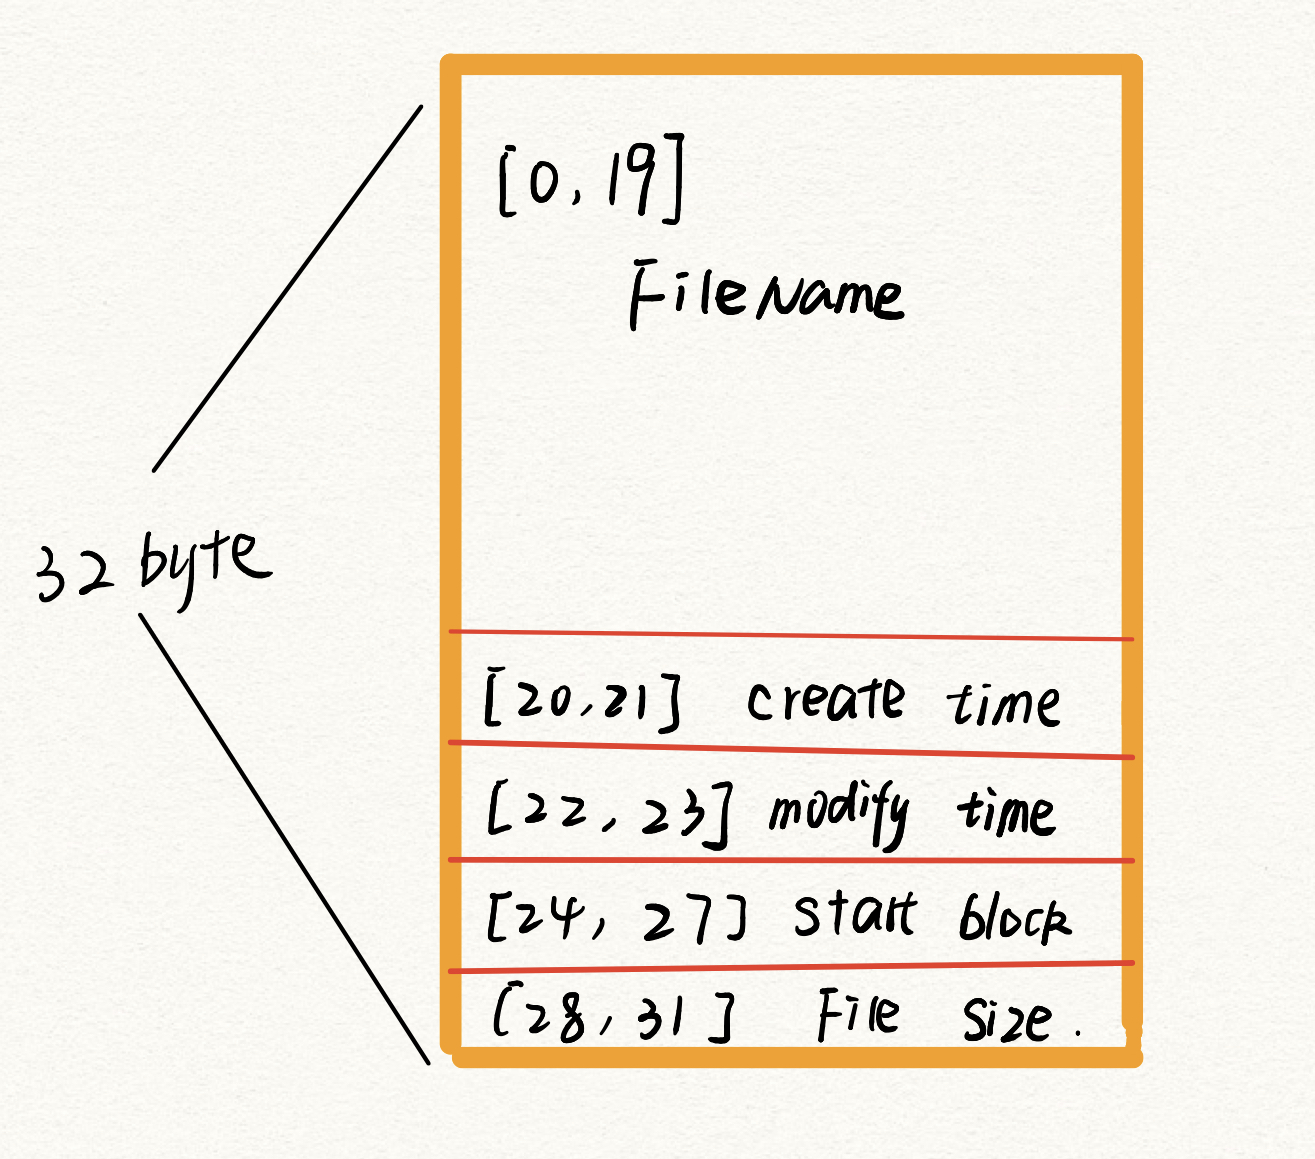 [0, 19]
FileName
32 byte
[20, 21] create time
[22, 23] modify time
[24, 27] start block
[28, 31] File size.